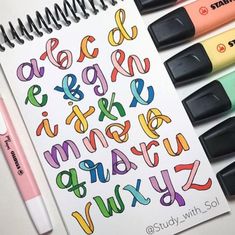 a b c d
e f g h
i j k l
m n o p
q r s t u
v w x y z
@Study_with_Sol
STABILO